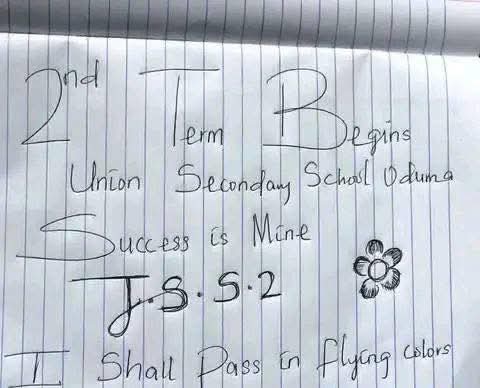 2nd Term Begins
Union Secondary School Oduma
Success is Mine
J.S.S.2
I Shall Pass in flying colors